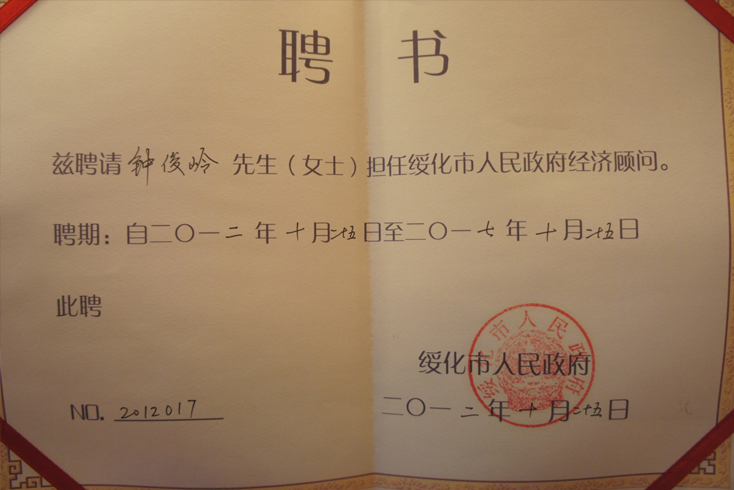 聘 书
兹聘请 钟俊岭 先生（女士）担任绥化市人民政府经济顾问。
聘期：自二〇一二年十月二十五日至二〇一七年十月二十五日
此聘
绥化市人民政府
绥化市人民政府
NO. 2012017
二〇一二年十月二十五日